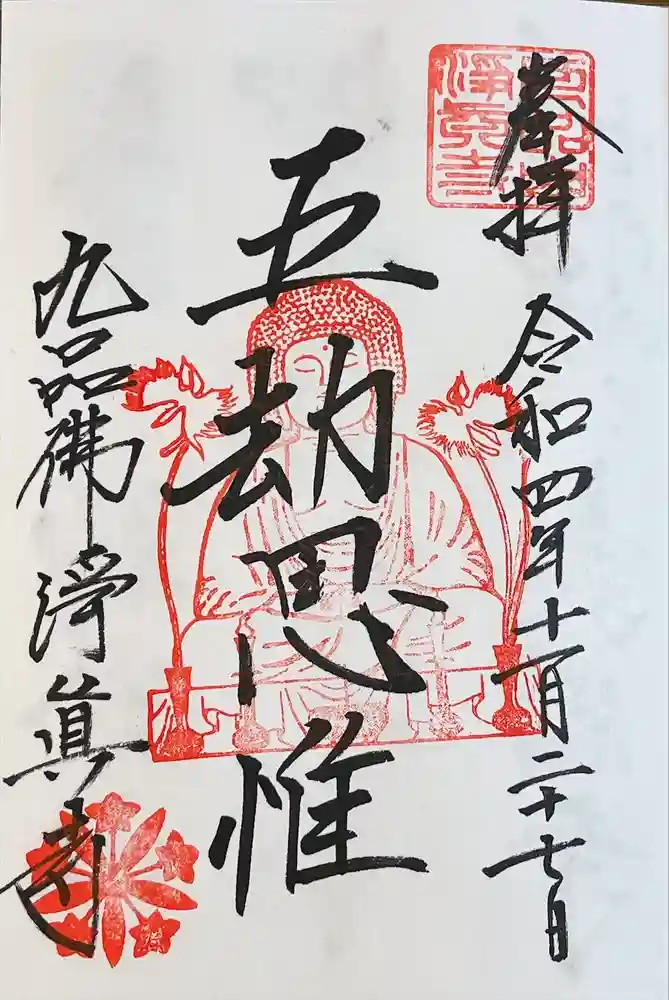 奉拝
令和四年十一月二十七日
五劫思惟
九品佛
淨眞寺